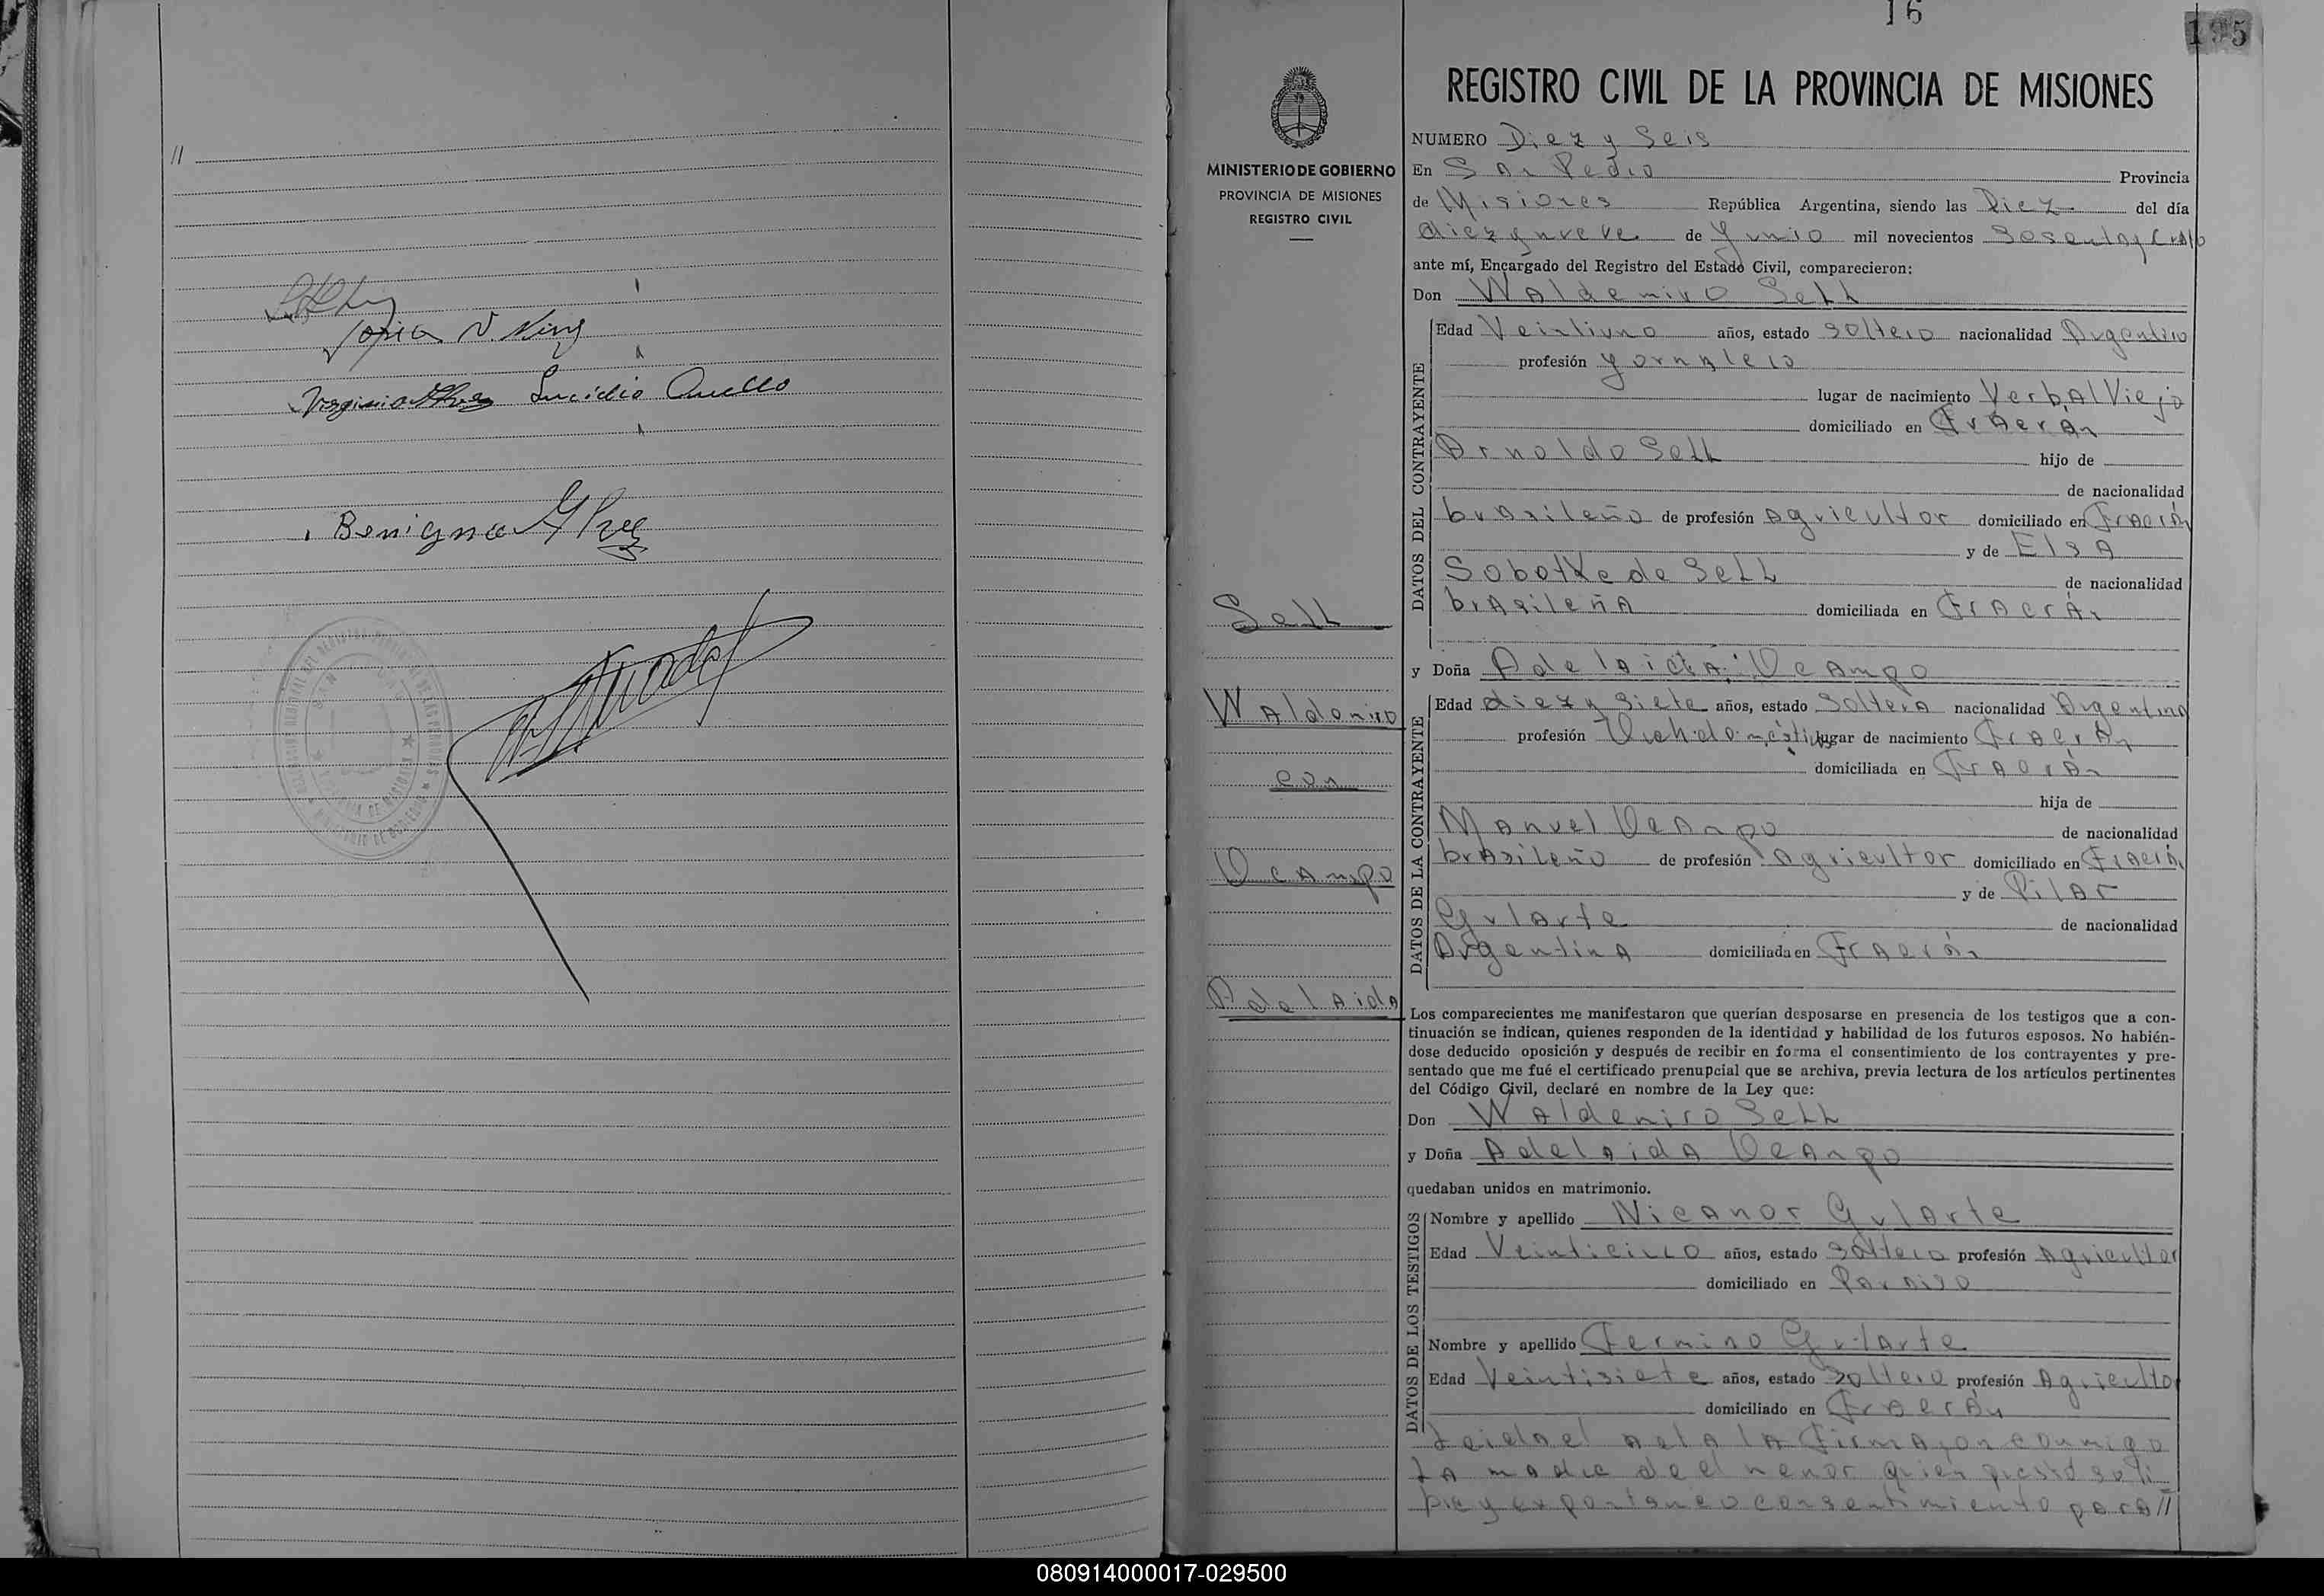 //
Sofia N. Niny
Lucidio Cuello
Benigna
16
195
MINISTERIO DE GOBIERNO
PROVINCIA DE MISIONES
REGISTRO CIVIL
Sell
Waldemiro
con
Ocampo
Adelaida
REGISTRO CIVIL DE LA PROVINCIA DE MISIONES
NUMERO Diez y Seis
En San Pedro Provincia
de Misiones República Argentina, siendo las Diez del día
diez y nueve de Yunio mil novecientos Sesenta y Cuatro
ante mí, Encargado del Registro del Estado Civil, comparecieron:
Don Waldemiro Sell
DATOS DEL CONTRAYENTE
Edad Veintiuno años, estado soltero nacionalidad Argentino
profesión Yornalero
lugar de nacimiento Yerbal Viejo
domiciliado en Fracrán
Arnoldo Sell hijo de
de nacionalidad
brasileño de profesión Agricultor domiciliado en Fracrán
y de Elsa
Sobotke de Sell de nacionalidad
brasileña domiciliada en Fracrán
y Doña Adelaida Ocampo
DATOS DE LA CONTRAYENTE
Edad diez y siete años, estado Soltera nacionalidad Argentina
profesión lugar de nacimiento Fracrán
domiciliada en Fracrán
hija de
Manuel Ocampo de nacionalidad
brasileño de profesión Agricultor domiciliado en Fracrán
y de Pilar
Gularte de nacionalidad
Argentina domiciliada en Fracrán
Los comparecientes me manifestaron que querían desposarse en presencia de los testigos que a con-
tinuación se indican, quienes responden de la identidad y habilidad de los futuros esposos. No habién-
dose deducido oposición y después de recibir en forma el consentimiento de los contrayentes y pre-
sentado que me fué el certificado prenupcial que se archiva, previa lectura de los artículos pertinentes
del Código Civil, declaré en nombre de la Ley que:
Don Waldemiro Sell
y Doña Adelaida Ocampo
quedaban unidos en matrimonio.
DATOS DE LOS TESTIGOS
Nombre y apellido Nicanor Gularte
Edad Veinticinco años, estado soltero profesión Agricultor
domiciliado en Paraiso
Nombre y apellido Fermino Gularte
Edad Veintisiete años, estado Soltero profesión Agricultor
domiciliado en Fracrán
Leida el acta la Firma, on conmigo
La madre de el menor quien presto su li
bre y expontaneo consentimiento para //
080914000017-029500